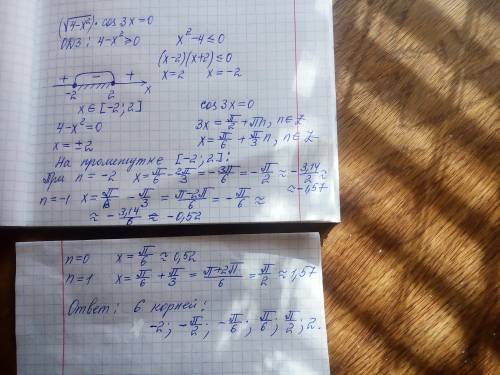 (√4-x²) · cos 3x = 0
ОДЗ: 4-x² ≥ 0   x²-4 ≤ 0
(x-2)(x+2) ≤ 0
x=2   x=-2
+ - +
-2 2 x
x ∈ [-2; 2]   cos 3x = 0
4-x² = 0   3x = π/2 + πn, n∈Z
x = ±2   x = π/6 + π/3 n, n∈Z
На промежутке [-2; 2]:
При n = -2   x = π/6 - 2π/3 = -3π/6 = -π/2 ≈ -3,14/2 ≈
≈ -1,57
n=-1   x = π/6 - π/3 = π-2π/6 = -π/6 ≈
≈ -3,14/6 ≈ -0,52
n=0   x = π/6 ≈ 0,52
n=1   x = π/6 + π/3 = π+2π/6 = π/2 ≈ 1,57
Ответ: 6 корней:
-2; -π/2; -π/6; π/6; π/2; 2.